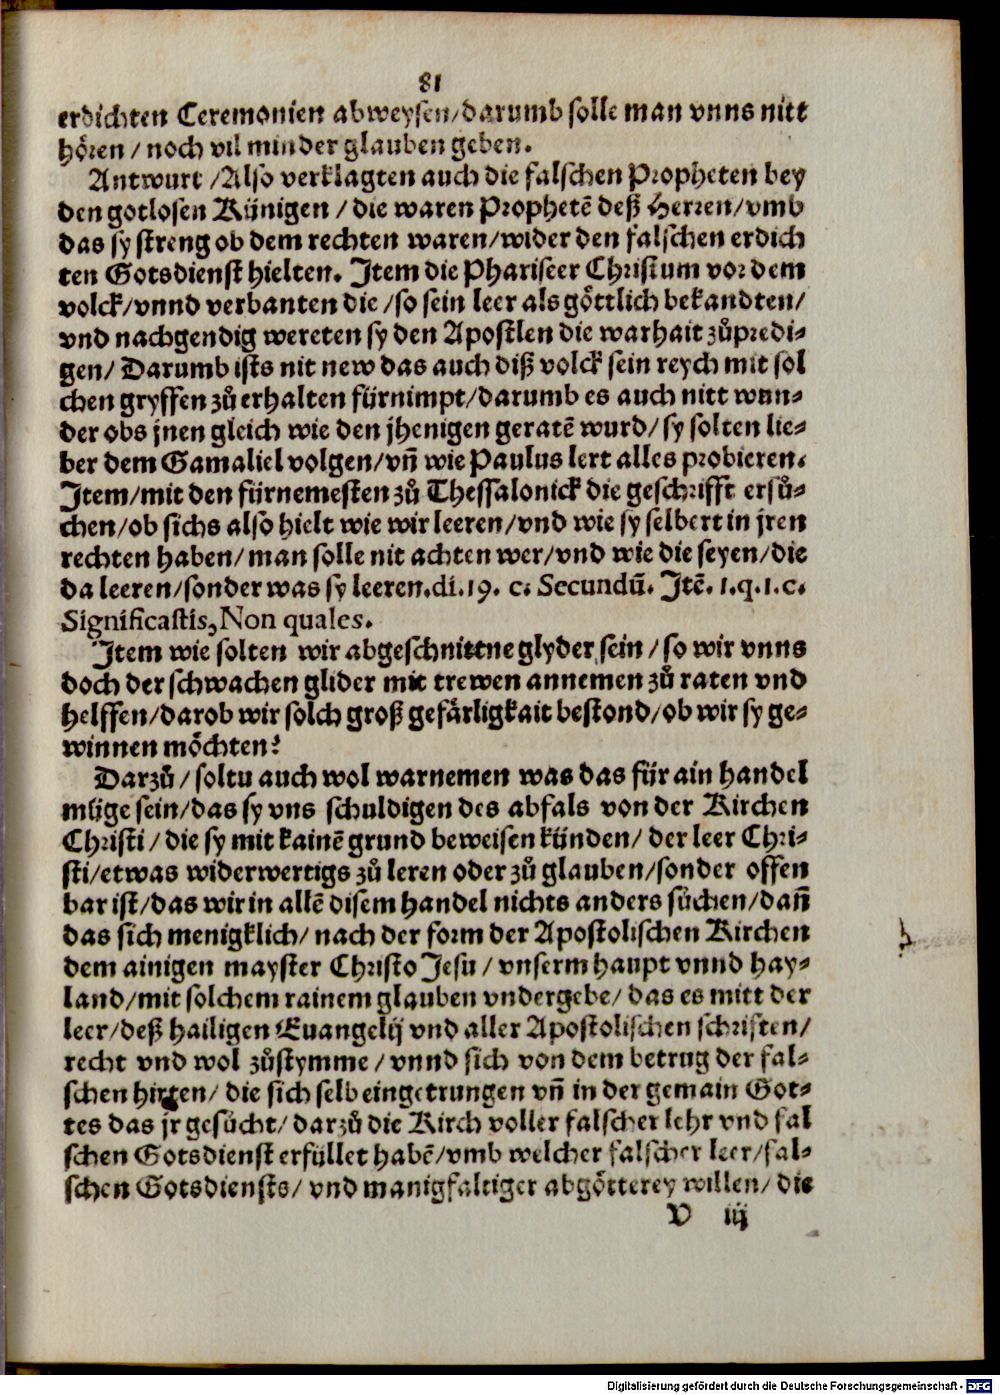 81
erdichten Ceremonien abweysen/darumb solle man vnns nitt
hören / noch vil minder glauben geben.
Antwurt /Also verklagten auch die falschen Propheten bey
den gotlosen Künigen / die waren Prophetē deß Herren/vmb
das sy streng ob dem rechten waren/wider den falschen erdich
ten Gotsdienst hielten. Item die Phariseer Christum vor dem
volck/vnnd verbanten die /so sein leer als göttlich bekandten/
vnd nachgendig wereten sy den Apostlen die warhait zůpredi⸗
gen/ Darumb ists nit new das auch diß volck sein reych mit sol
chen gryffen zů erhalten fürnimpt/darumb es auch nitt wun⸗
der obs jnen gleich wie den jhenigen geratē wurd/ sy solten lie⸗
ber dem Gamaliel volgen/vñ wie Paulus lert alles probieren.
Item/mit den fürnemesten zů Thessalonick die geschrifft ersů⸗
chen/ob sichs also hielt wie wir leeren/vnd wie sy selbert in jren
rechten haben/man solle nit achten wer/vnd wie die seyen/die
da leeren/sonder was sy leeren.di.19. c. Secundū. Itē. 1.q.1.c.
Significastis, Non quales.
Item wie solten wir abgeschnittne glyder sein /so wir vnns
doch der schwachen glider mit trewen annemen zů raten vnd
helffen/darob wir solch groß gefärligkait bestond/ob wir sy ge⸗
winnen möchten?
Darzů/ soltu auch wol warnemen was das für ain handel
müge sein/das sy vns schuldigen des abfals von der Kirchen
Christi / die sy mit kainē grund beweisen künden/ der leer Chri⸗
sti/etwas widerwertigs zů leren oder zů glauben/sonder offen
bar ist/das wir in allē disem handel nichts anders süchen/dañ
das sich menigklich/ nach der form der Apostolischen Kirchen
dem ainigen mayster Christo Jesu / vnserm haupt vnnd hay⸗
land/mit solchem rainem glauben vndergebe/ das es mitt der
leer/deß hailigen Euangelij vnd aller Apostolischen schriften/
recht vnd wol zůstymme / vnnd sich von dem betrug der fal⸗
schen hirten/ die sich selb eingetrungen vñ in der gemain Got⸗
tes das jr gesücht/ darzů die Kirch voller falscher lehr vnd fal
schen Gotsdienst erfüllet habē/vmb welcher falscher leer/fal⸗
schen Gotsdiensts/ vnd manigfaltiger abgötterey willen/ die
V iij
Digitalisierung gefördert durch die Deutsche Forschungsgemeinschaft - DFG